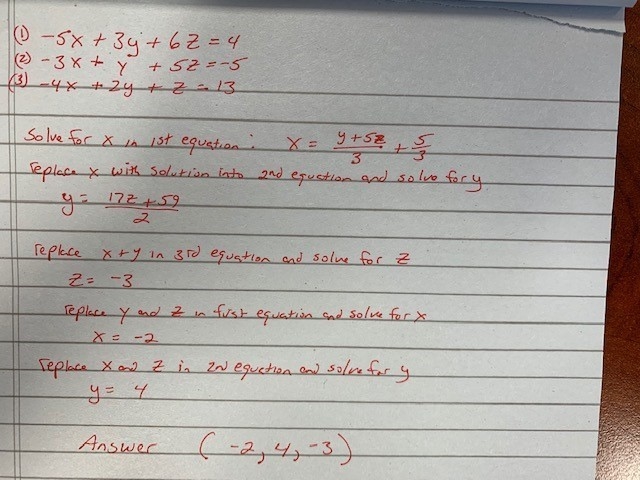 (1) -5x + 3y + 6z = 4
(2) -3x + y + 5z = -5
(3) -4x + 2y + z = 13
Solve for x in 1st equation: x = (y+5z)/3 + 5/3
replace x with solution into 2nd equation and solve for y
y = (17z + 59)/2
replace x + y in 3rd equation and solve for z
z = -3
replace y and z in first equation and solve for x
x = -2
replace x and z in 2nd equation and solve for y
y = 4
Answer (-2, 4, -3)